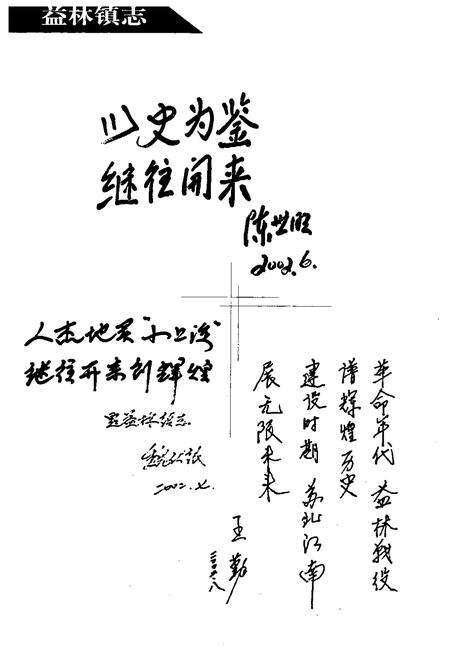 益林镇志
以史为鉴
继往开来
陈世旺
2002.6.
人杰地灵"小上海"
继往开来创辉煌
益林镇志
2002.
革命年代 益林战役
谱辉煌历史
建设时期 苏北江南
展无限未来
王勤